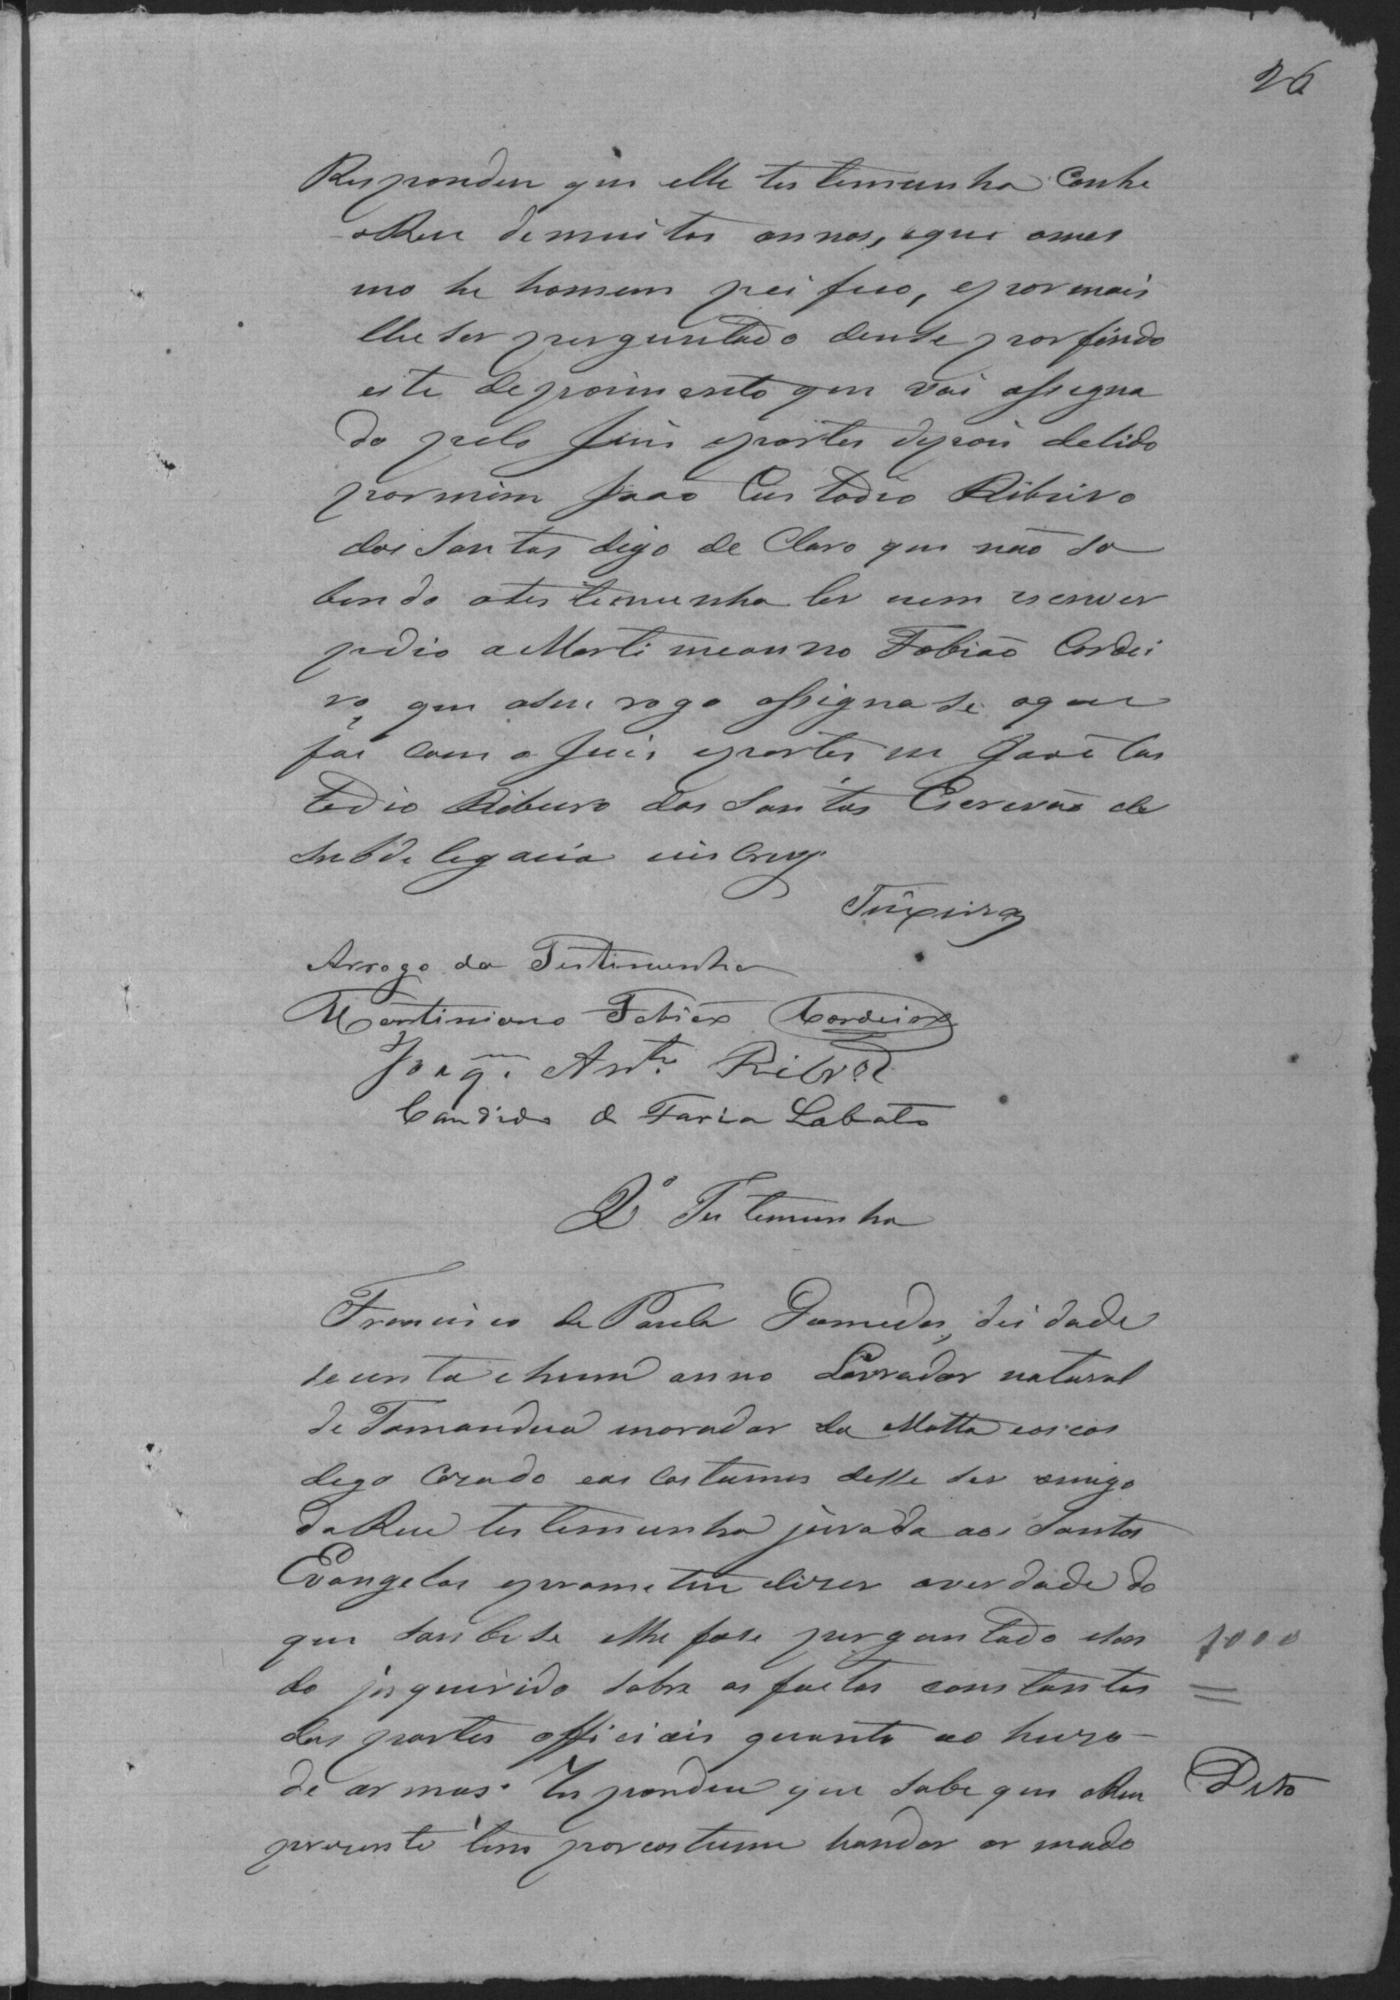 26
Respondeu que elle testemunha conhe
o Reu de muitos annos, e que o mes
mo he homem pasifico, e por mais
lhe ser perguntado deu se por findo
este depoimento que vai assigna
do pelo Juis e partes depois de lido
por mim João Custodio Ribeiro
dos Santos digo de Claro que não sa
bendo a testemunha ler nem escrever
pedio a Martimeanno Fabião Cordei
ro, que a seu rogo assignase o que
fas com o Juis e partes eu João Cus
todio Ribeiro dos Santos Escrivão de
Subdelegacia escrevy
Teixeira
Arrogo da Testemunha
Martiniano Fabião Cordeiro
Joaqm. Anto. Ribro.
Candido de Faria Lobato
2º Testemunha
Francisco de Paula Guimedes, de idade
secenta e hum anno Lavrador natural
de Tamandua morador da Motta
digo Cazado e aos costumes disse ser amigo
do Reu testemunha jurada aos Santos
Evangelos e prometeu dizer a verdade do
que soubese e lhe fose perguntado e sen
do inquirido sobre os factos constantes
das partes officiais quanto ao huzo
de armas. Respondeu que sabe que o Reu
presente tem por costume handar armado
1000
Dito